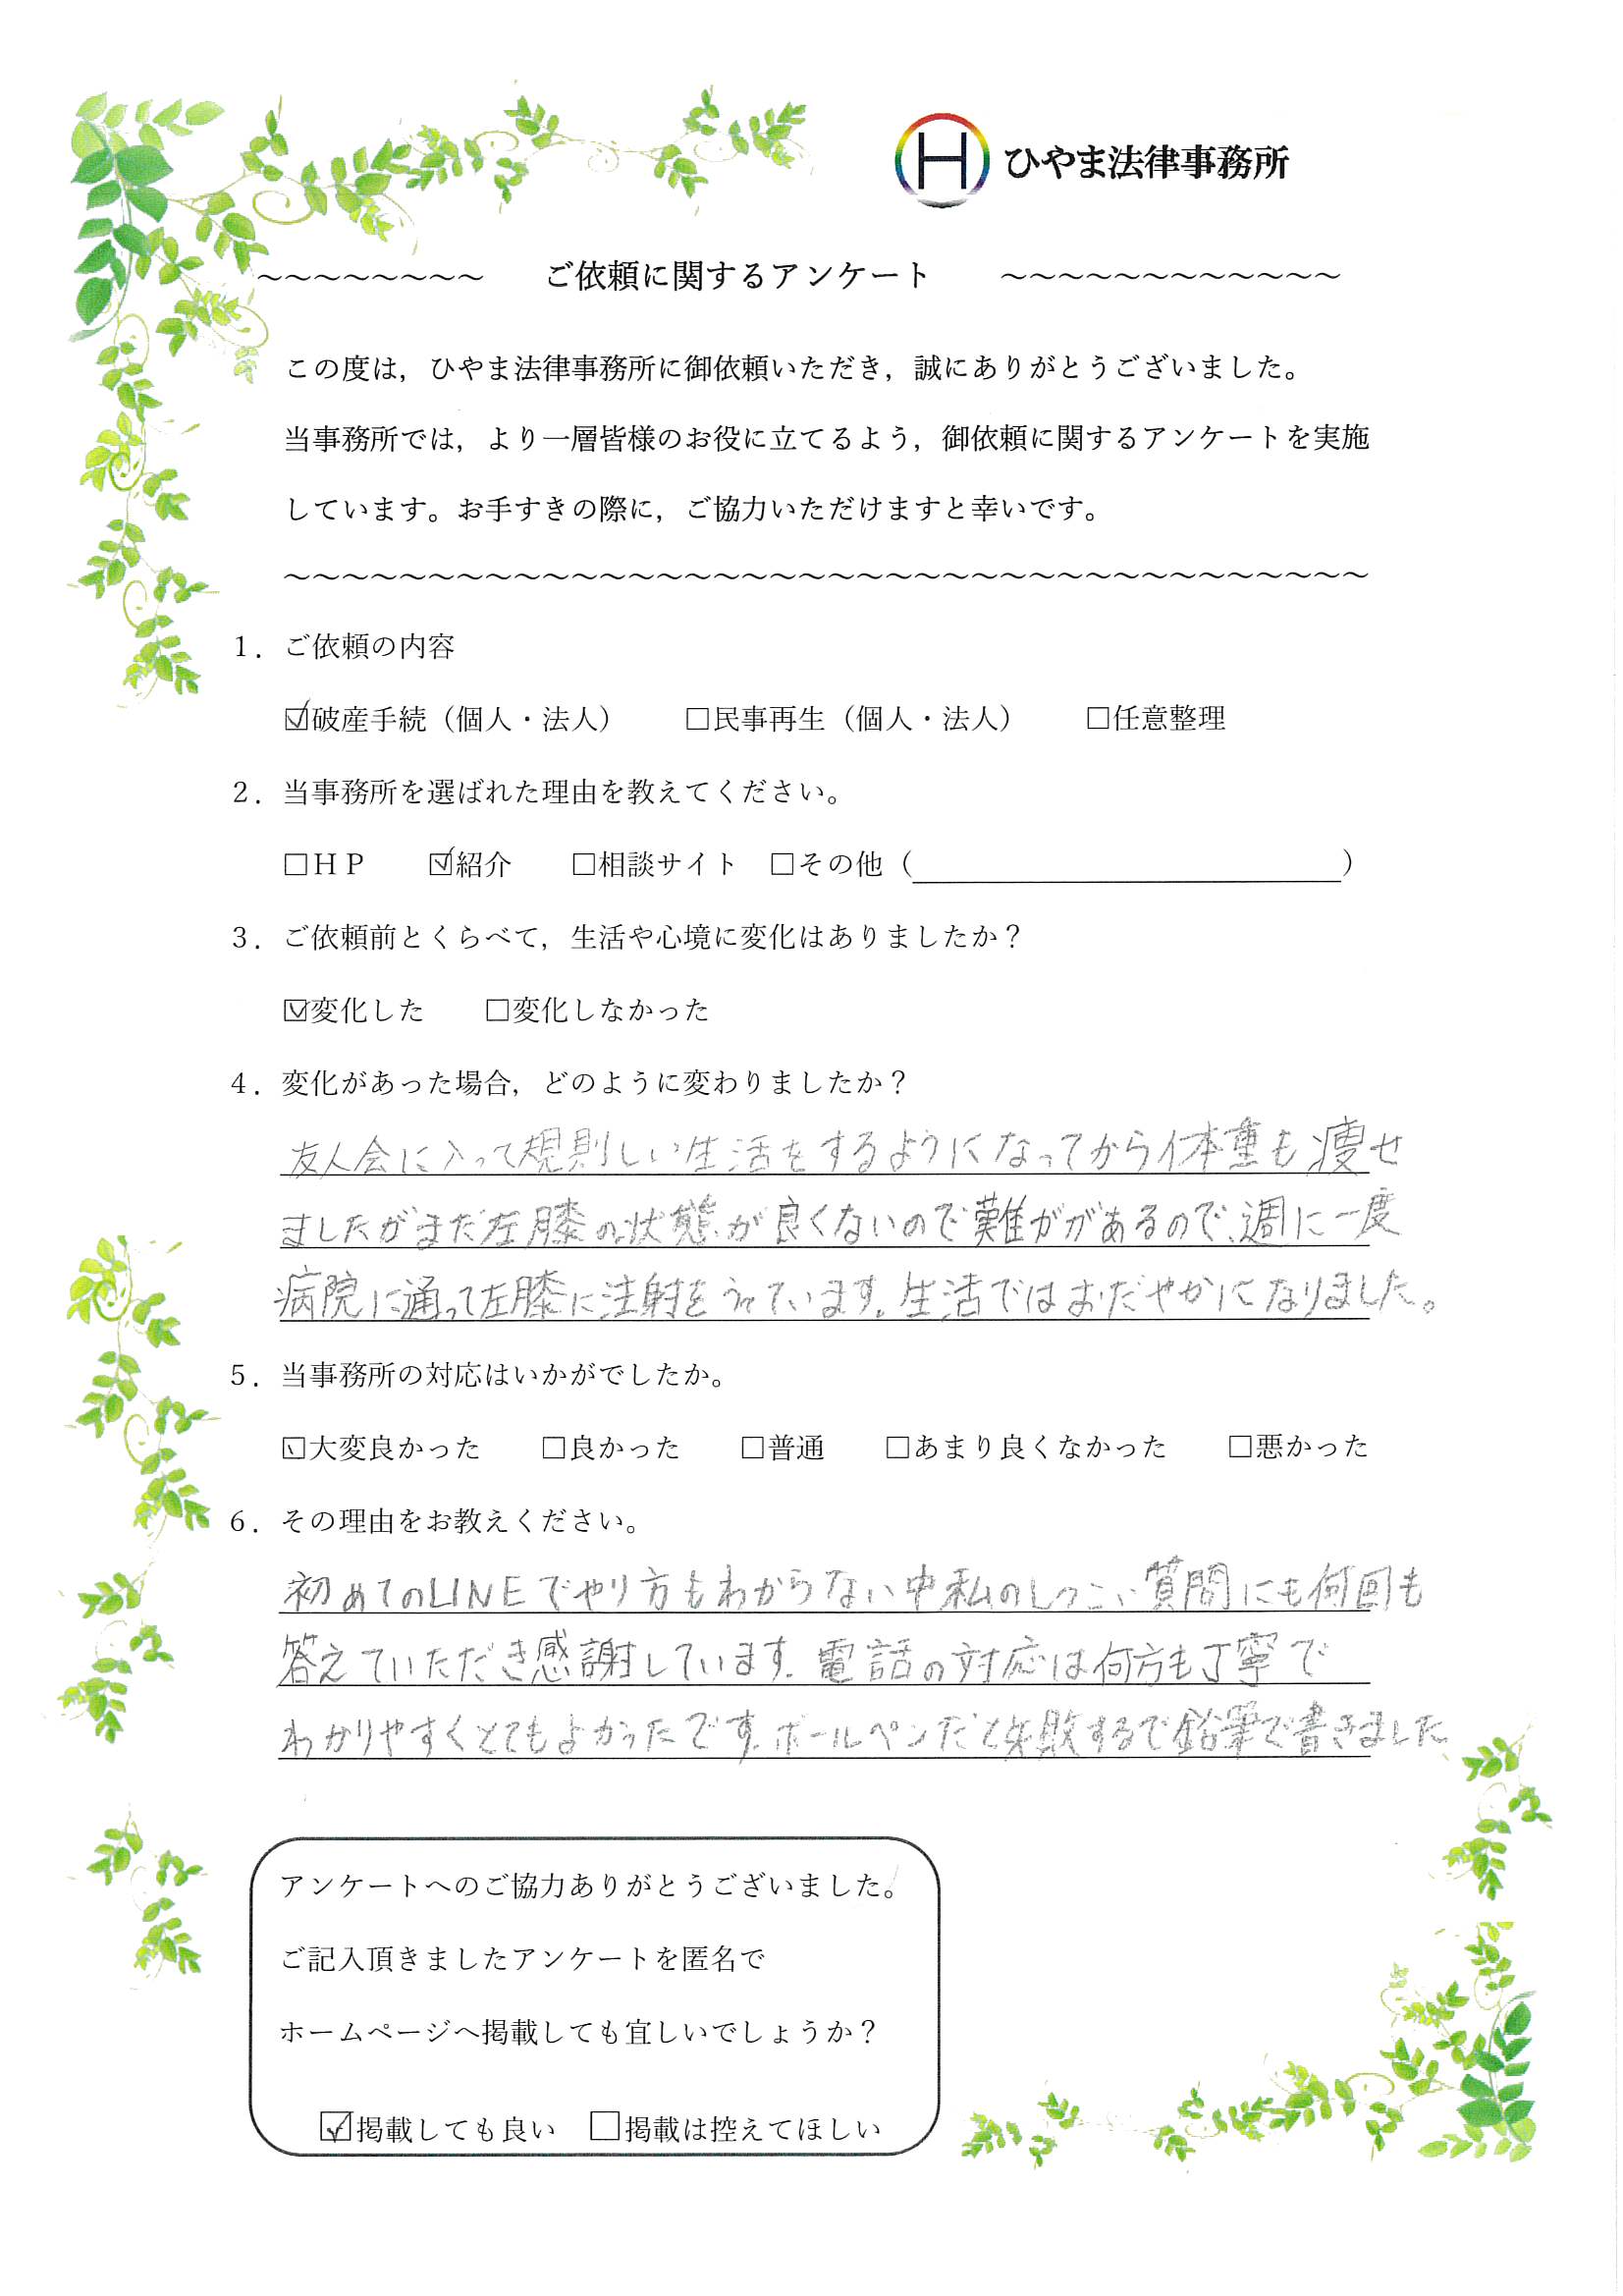 H ひやま法律事務所
～～～～～～～～ ご依頼に関するアンケート ～～～～～～～～～～～～
この度は，ひやま法律事務所に御依頼いただき，誠にありがとうございました。
当事務所では，より一層皆様のお役に立てるよう，御依頼に関するアンケートを実施
しています。お手すきの際に，ご協力いただけますと幸いです。
～～～～～～～～～～～～～～～～～～～～～～～～～～～～～～～～～～～～～～
１．ご依頼の内容
☑破産手続（個人・法人） □民事再生（個人・法人） □任意整理
２．当事務所を選ばれた理由を教えてください。
□ＨＰ ☑紹介 □相談サイト □その他（ ）
３．ご依頼前とくらべて，生活や心境に変化はありましたか？
☑変化した □変化しなかった
４．変化があった場合，どのように変わりましたか？
友人会に入って規則しい生活をするようになってから体重も痩せ
ましたがまだ左膝の状態が良くないので難ががあるので、週に一度
病院に通って左膝に注射をうっています。生活ではおだやかになりました。
５．当事務所の対応はいかがでしたか。
☑大変良かった □良かった □普通 □あまり良くなかった □悪かった
６．その理由をお教えください。
初めてのLINEでやり方もわからない中私のしつこい質問にも何回も
答えていただき感謝しています。電話の対応は何方も丁寧で
わかりやすくとてもよかったです。ボールペンだと失敗するで鉛筆で書きました
アンケートへのご協力ありがとうございました。
ご記入頂きましたアンケートを匿名で
ホームページへ掲載しても宜しいでしょうか？
☑掲載しても良い □掲載は控えてほしい